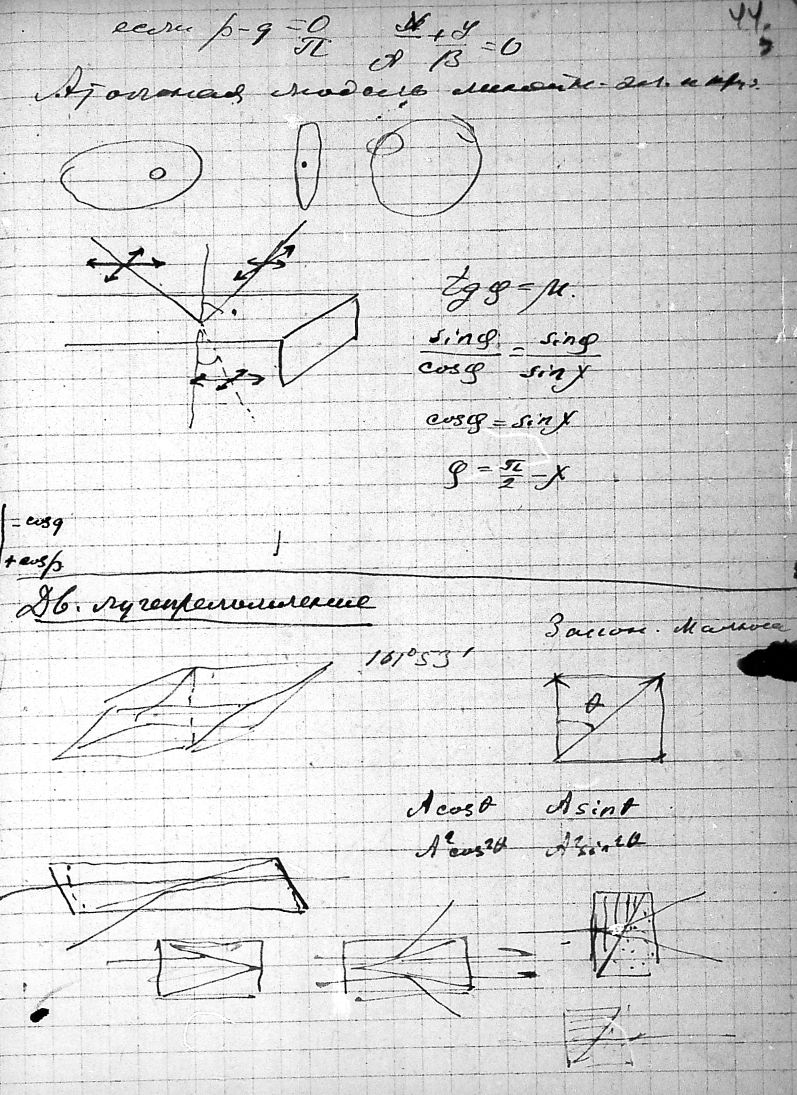 44.
если p-q = 0/π x/A + y/B = 0
Атомная модель
tg φ = μ.
sin φ / cos φ = sin φ / sin χ
cos φ = sin χ
φ = π/2 - χ
= cos q
+ cos p
Дв. лучепреломление
Закон Малюса
101°53'
θ
A cos θ A sin θ
A² cos² θ A² sin² θ